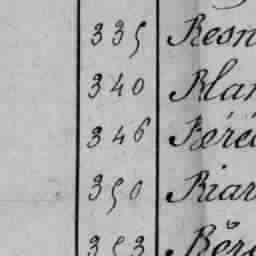 335 Resn
340 Blan
346 Féré
350 Riar
353 Bér